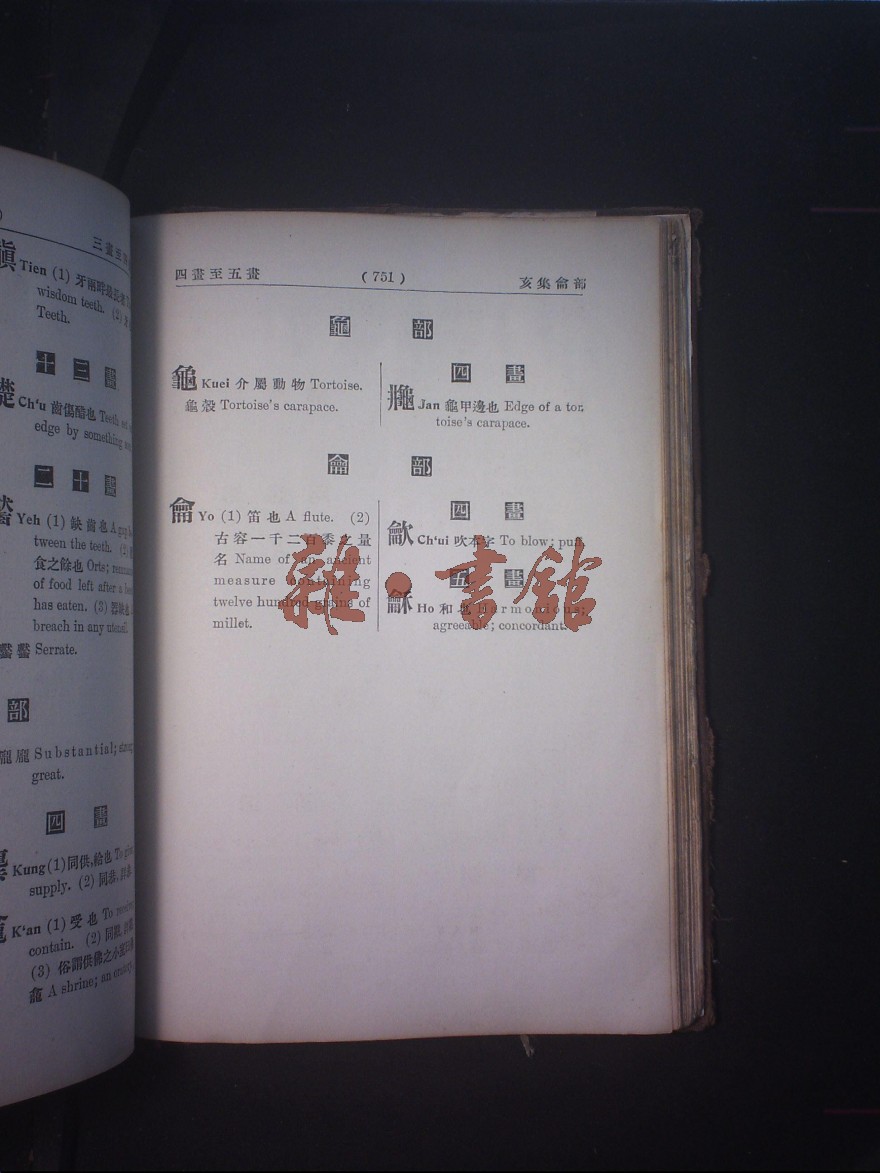 三畫至
Tien (1) 牙
wisdom teeth. (2)
Teeth.
十三畫
Ch'u 齒傷酷也 Teeth
edge by something
二十畫
Yeh (1) 缺齒也 A gap
tween the teeth. (2)
食之餘也 Orts;
of food left after a
has eaten. (3) 器缺也
breach in any utensil.
Serrate.
部
龍龐 Substantial;
great.
四畫
龔 Kung (1) 同供,給也 To
supply. (2) 同恭
龕 K'an (1) 受也 To
contain. (2) 同
(3) 俗謂供佛之小
龕 A shrine; an
四畫至五畫
(751)
亥集龠部
龜部
龜 Kuei 介屬動物 Tortoise.
龜殼 Tortoise's carapace.
四畫
Jan 龜甲邊也 Edge of a tor-
toise's carapace.
龠部
龠 Yo (1) 笛也 A flute. (2)
古容一千二百黍之量
名 Name of an ancient
measure containing
twelve hundred grains of
millet.
四畫
龡 Ch'ui 吹本字 To blow; puff.
五畫
龢 Ho 和也 Harmonious;
agreeable; concordant.
雜·書館